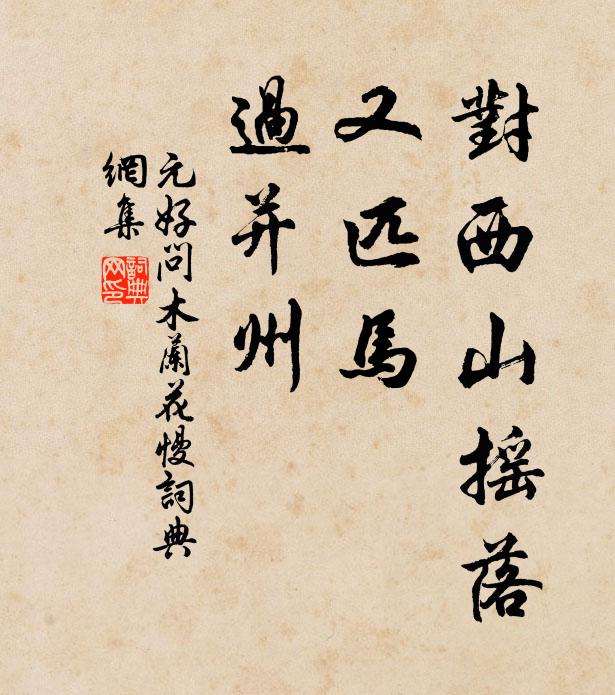 對西山摇落
又匹馬
過并州
元好問木蘭花慢詞典
網集
詞典
网印